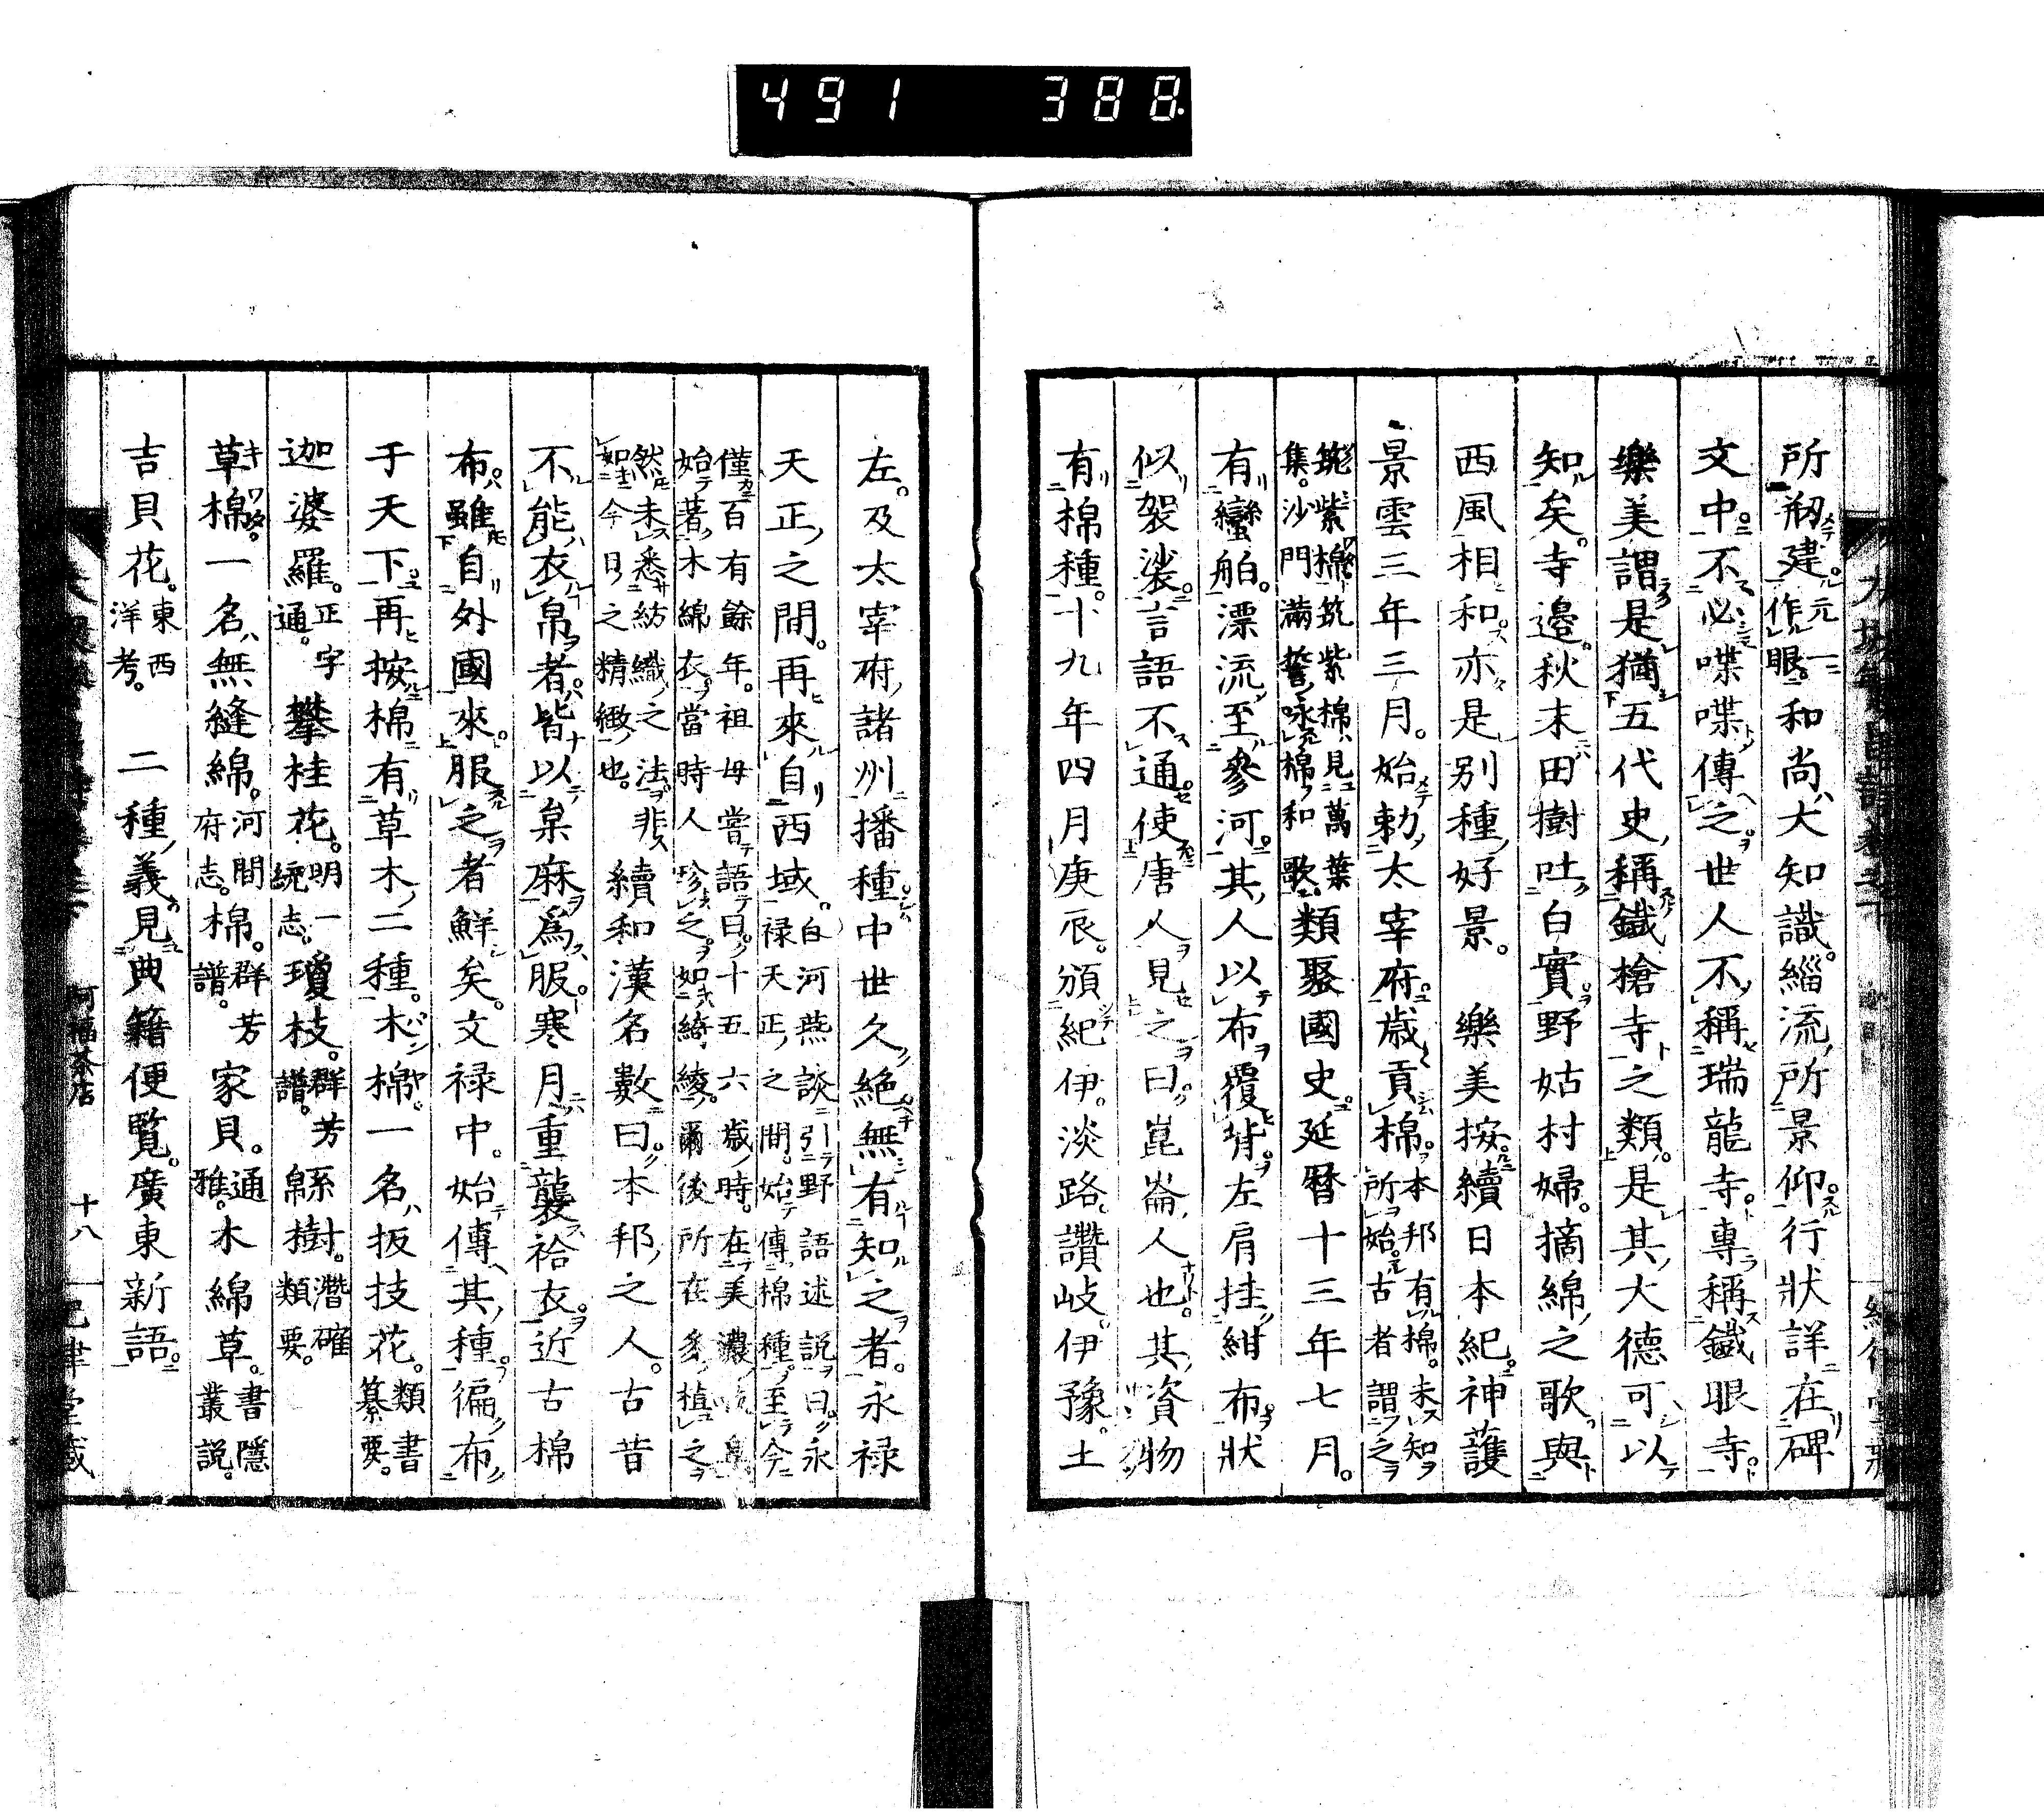 491 388
所剏建元一作眼和尚大知識緇流所景仰行狀詳在碑
文中不必喋喋傳之世人不稱瑞龍寺專稱鐵眼寺
樂美謂是猶五代史稱鐵槍寺之類是其大德可以
知矣寺邊秋末田樹吐白實野姑村婦摘綿之歌與
西風相和亦是別種好景。 樂美按續日本紀神護
景雲三年三月。始勅太宰府歲貢棉本邦有棉。未知所始古者謂之
筑紫棉筑紫棉見萬葉集。沙門滿誓咏棉和歌類聚國史延曆十三年七月。
有蠻舶。漂流至參河其人以布覆背左肩挂紺布狀
似袈裟言語不通使唐人見之曰崑崙人也其資物
有棉種。十九年四月庚辰。頒紀伊。淡路。讚岐。伊豫。土
左。及太宰府諸州播種中世久絶無有知之者。永祿
天正之間。再來自西域。白河燕談引野語述説曰永祿天正之間。始傳棉種至今
僅百有餘年。祖母嘗語曰十五六歲時。在美濃始著木綿衣當時人珍之如綺綾。爾後所在多植之
然未悉紡織之法非如今日之精緻也。續和漢名數曰本邦之人。古昔
不能衣帛者皆以枲麻爲服寒月重襲袷衣近古棉
布雖自外國來服之者鮮矣。文祿中。始傳其種徧布
于天下再按棉有草木二種。木棉一名扳技花。類書纂要。
迦婆羅。正字通。攀桂花。明一統志。瓊枝。群芳譜。緜樹。潛確類要。
草棉。一名無縫綿。河間府志。棉。群芳譜。家貝。通雅。木綿草。書隱叢説。
吉貝花。東西洋考。 二種義見典籍便覽。廣東新語。
阿福茶店 十八